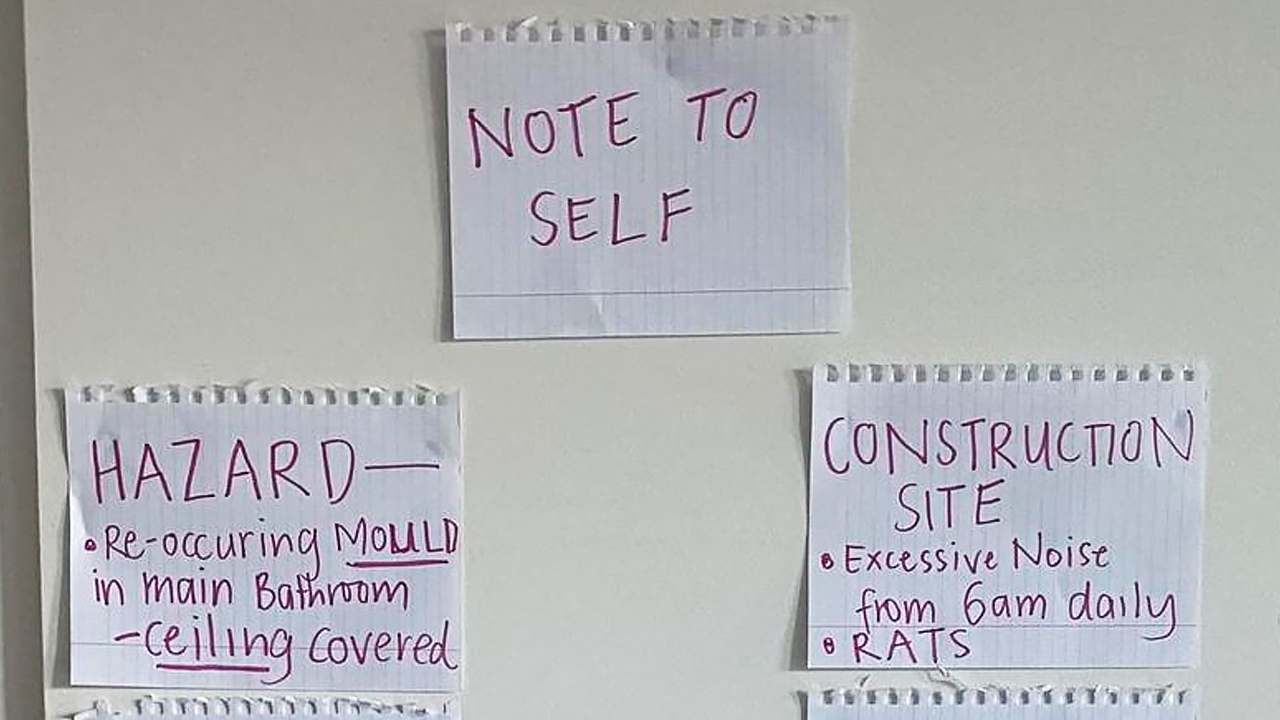 NOTE TO
SELF
HAZARD—
• Re-occuring MOULD
in main Bathroom
- ceiling covered
CONSTRUCTION
SITE
• Excessive Noise
from 6am daily
• RATS